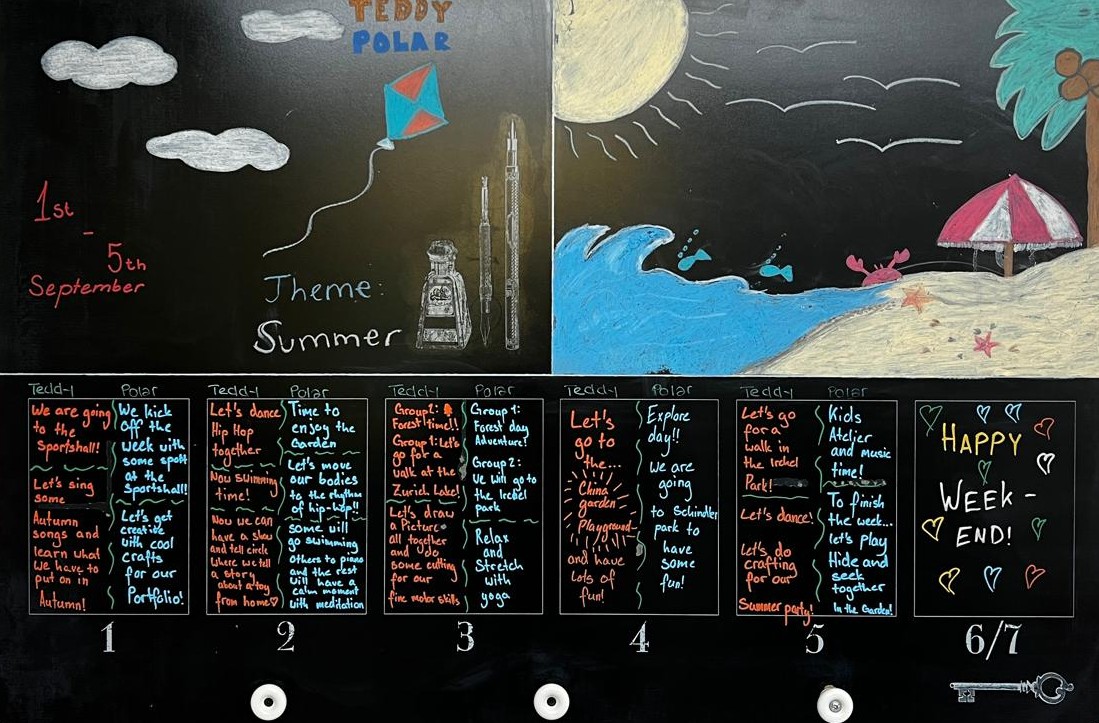 TEDDY
POLAR
1st
-
5th
September
Theme:
Summer
Teddy
We are going
to the
Sportshall!
Let's sing
some
Autumn
songs and
learn what
we have to
put on in
Autumn!
Polar
We kick
off the
week with
some sport
at the
Sportshall!
Let's get
creative
with cool
crafts
for our
Portfolio!
1
Teddy
Let's dance
Hip Hop
together
Now swimming
time!
Now we can
have a show
and tell circle
where we tell
a story
about a toy
from home♡
Polar
Time to
enjoy the
Garden
Let's move
our bodies
to the rhythm
of hip-hop!!
some will
go swimming
others to piano
and the rest
will have a
calm moment
with meditation
2
Teddy
Group 2:
Forest time!!
Group 1: Let's
go for a
walk at the
Zurich Lake!
Let's draw
a Picture
all together
and do
some cutting
for our
fine motor skills
Polar
Group 1:
Forest day
Adventure!
Group 2:
We will go to
the Irchel
park
Relax
and
Stretch
with
yoga
3
Teddy
Let's
go to
the...
China
garden
Playground
and have
lots of
fun!
Polar
Explore
day!!
We are
going
to Schindler
park to
have
some
fun!
4
Teddy
Let's go
for a
walk in
the Irchel
Park!
Let's dance!
Let's do
crafting
for our
Summer party!
Polar
Kids
Atelier
and music
time!
To finish
the week...
let's play
Hide and
seek
together
In the Garden!
5
HAPPY
WEEK-
END!
6/7